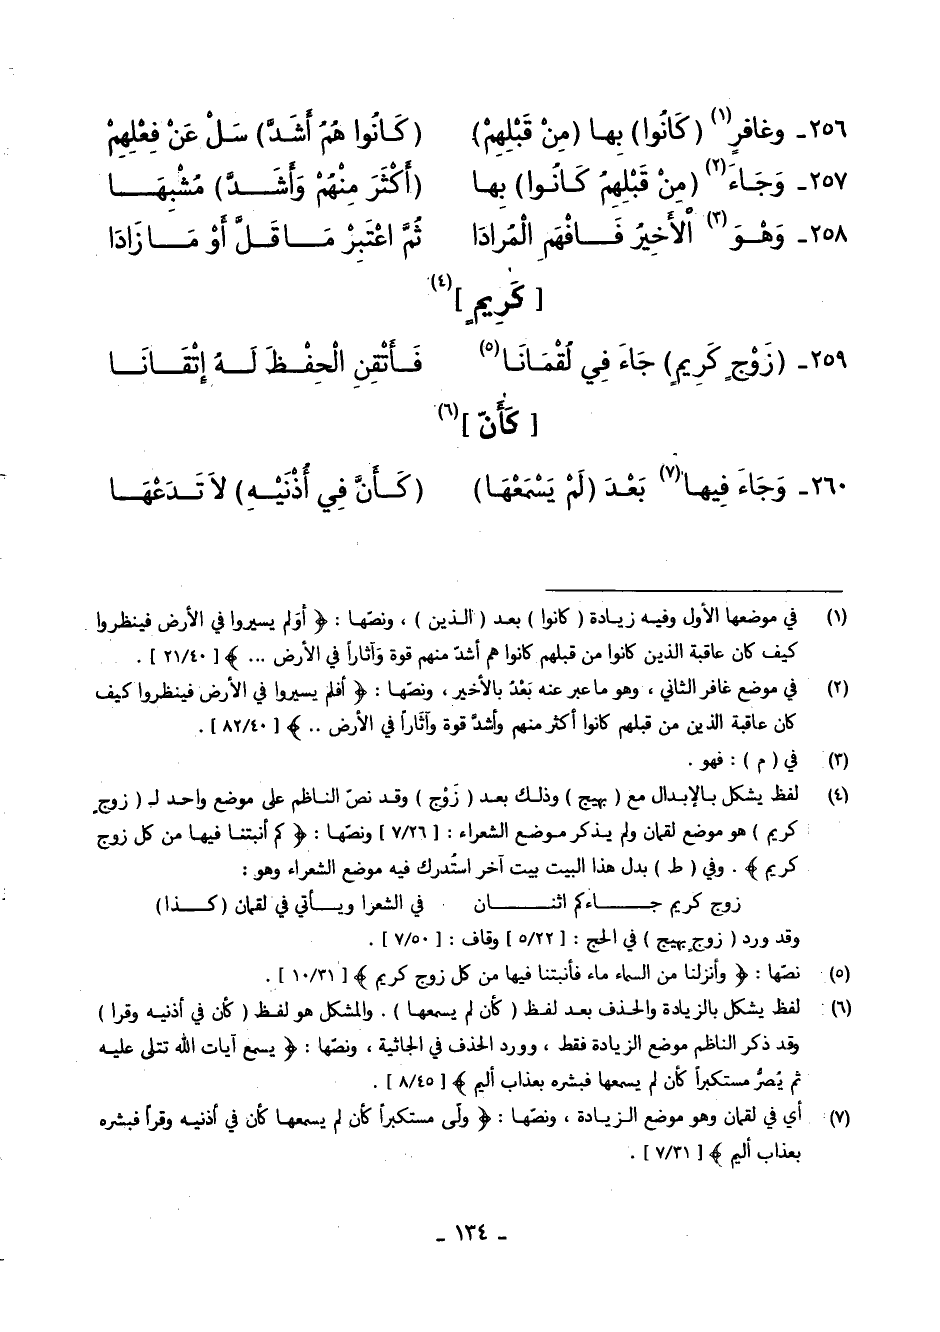 ٢٥٦ـ وغافرٍ(١) (كَانُوا) بِها (مِنْ قَبْلِهِمْ) (كَانُوا هُمُ أَشَدَّ) سَلْ عَنْ فِعْلِهِمْ
٢٥٧ـ وَجَاءَ(٢) (مِنْ قَبْلِهِمُ كَانُوا) بِها (أَكْثَرَ مِنْهُمْ وَأَشَدَّ) مُشْبِهَا
٢٥٨ـ وَهْوَ(٣) الْأَخِيرُ فَافْهَمِ الْمُرادَا ثُمَّ اعْتَبِرْ مَا قَلَّ أَوْ مَا زَادَا
[ كَرِيمٍ ](٤)
٢٥٩ـ (زَوْجٍ كَرِيمٍ) جَاءَ فِي لُقْمَانَا(٥) فَأَتْقِنِ الْحِفْظَ لَهُ إِتْقَانَا
[ كَأَنّ ](٦)
٢٦٠ـ وَجَاءَ فِيها(٧) بَعْدَ (لَمْ يَسْمَعْهَا) (كَأَنَّ فِي أُذْنَيْهِ) لاَ تَدَعْهَا
(١) في موضعها الأول وفيه زيادة ( كانوا ) بعد ( الذين ) ، ونصّها : ﴿ أوَلم يسيروا في الأرض فينظروا
كيف كان عاقبة الذين كانوا من قبلهم كانوا هم أشدّ منهم قوة وَآثاراً في الأرض ... ﴾ [ ٢١/٤٠ ] .
(٢) في موضع غافر الثاني ، وهو ما عبر عنه بَعْدُ بالأخير ، ونصّها : ﴿ أفلم يسيروا في الأرض فينظروا كيف
كان عاقبة الذين من قبلهم كانوا أكثر منهم وأشدَّ قوة وآثَاراً في الأرض .. ﴾ [ ٨٢/٤٠ ] .
(٣) في ( م ) : فهو .
(٤) لفظ يشكل بالإبدال مع ( بهيج ) وذلك بعد ( زَوْج ) وقد نصّ الناظم على موضع واحد لـ ( زوجٍ
كريم ) هو موضع لقمان ولم يذكر موضع الشعراء : [ ٧/٢٦ ] ونصّها : ﴿ كم أنبتنا فيها من كل زوج
كريم ﴾ . وفي ( ط ) بدل هذا البيت بيت آخر استُدرك فيه موضع الشعراء وهو :
زوج كريم جاءكم اثنان في الشعرا ويأتي في لقمان (كذا)
وقد ورد ( زوجٍ بهيج ) في الحج : [ ٥/٢٢ ] وقاف : [ ٧/٥٠ ] .
(٥) نصّها : ﴿ وأنزلنا من السماء ماء فأنبتنا فيها من كل زوج كريم ﴾ [ ١٠/٣١ ] .
(٦) لفظ يشكل بالزيادة والحذف بعد لفظ ( كأن لم يسمعها ) . والمشكل هو لفظ ( كأن في أذنيه وقرا )
وقد ذكر الناظم موضع الزيادة فقط ، وورد الحذف في الجاثية ، ونصّها : ﴿ يسمع آيات الله تتلى عليه
ثم يُصرُّ مستكبراً كأن لم يسمعها فبشره بعذاب أليم ﴾ [ ٨/٤٥ ] .
(٧) أي في لقمان وهو موضع الزيادة ، ونصّها : ﴿ ولّى مستكبراً كأن لم يسمعها كأن في أذنيه وقراً فبشره
بعذاب أليم ﴾ [ ٧/٣١ ] .
ـ ١٣٤ ـ